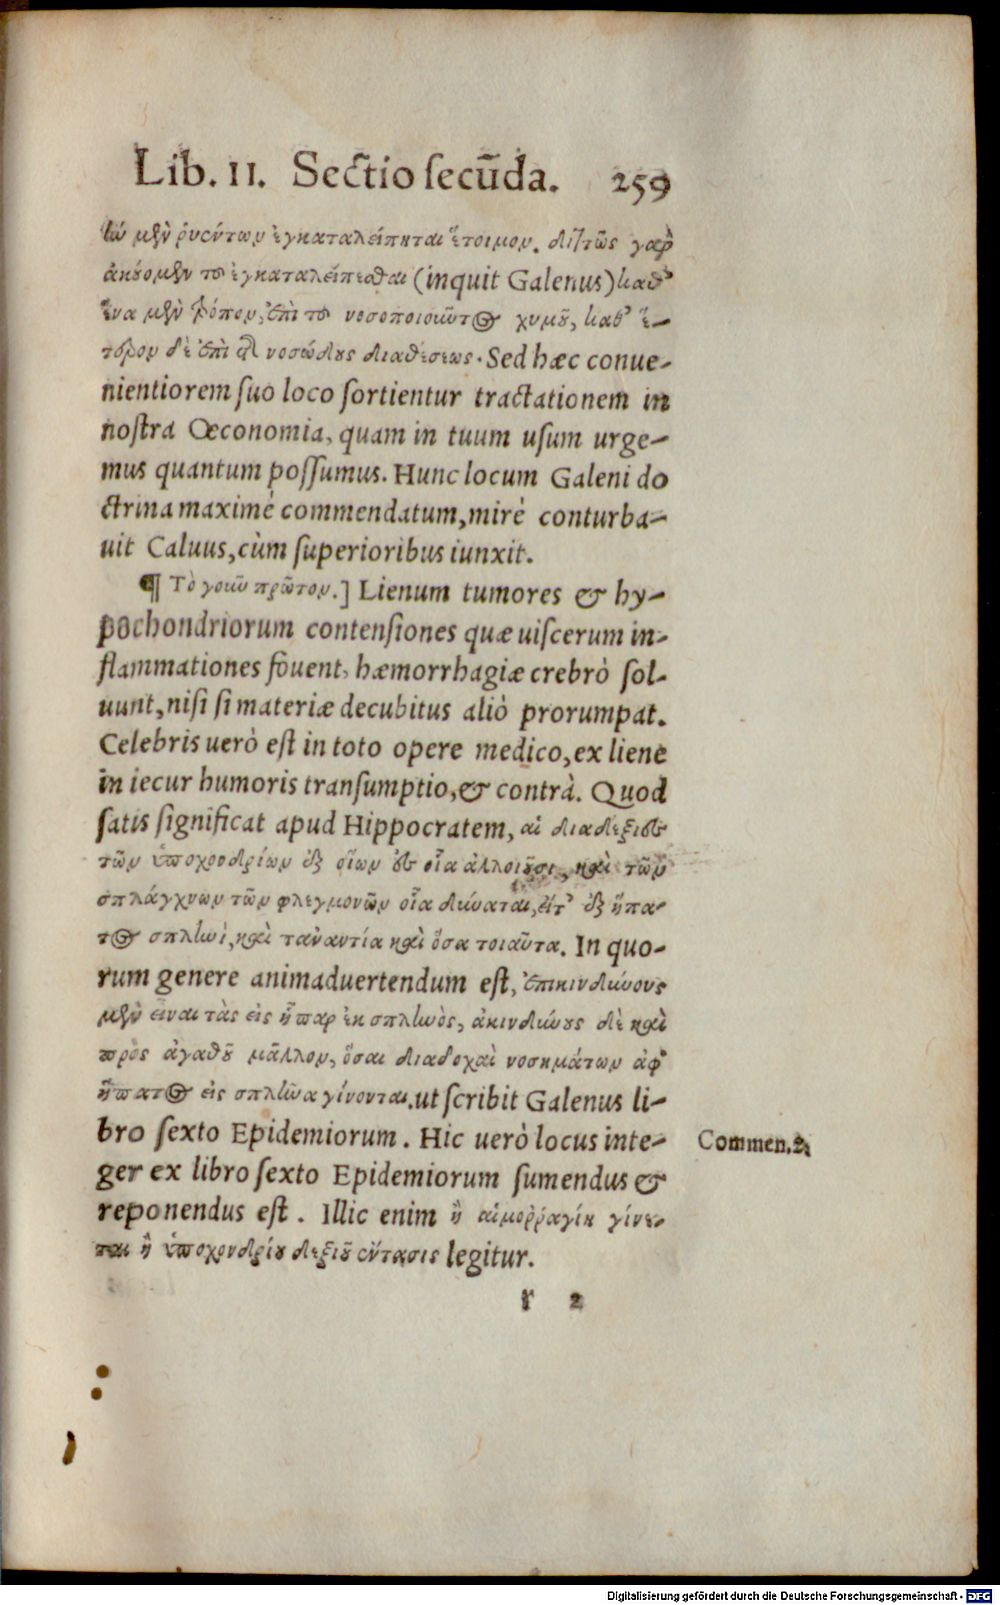 Lib. II. Sectio secūda. 259
μὲν ῥυέντων ἐγκαταλείπηται ἕτοιμον. διττῶς γὰρ
ἀκούομεν τὸ ἐγκαταλείπεσθαι (inquit Galenus) καθ'
ἕνα μὲν τρόπον, ἐπὶ τοῦ νοσοποιοῦντος χυμοῦ, καθ' ἕ-
τερον δὲ ἐπὶ τῆς νοσώδους διαθέσεως. Sed hæc conue-
nientiorem suo loco sortientur tractationem in
nostra Œconomia, quam in tuum usum urge-
mus quantum possumus. Hunc locum Galeni do
ctrina maximè commendatum, mirè conturba-
uit Caluus, cùm superioribus iunxit.
¶ Τὸ γοῦν πρῶτον.] Lienum tumores & hy-
pochondriorum contensiones quæ uiscerum in-
flammationes fouent, hæmorrhagiæ crebrò sol-
uunt, nisi si materiæ decubitus aliò prorumpat.
Celebris uerò est in toto opere medico, ex liene
in iecur humoris transumptio, & contrà. Quod
satis significat apud Hippocratem, αἱ διαδέξιες
τῶν ὑποχονδρίων ἐξ οἵων ἐς οἷα ἀλλοιοῦσι, καὶ τῶν
σπλάγχνων τῶν φλεγμονῶν οἷα δύναται, εἴτ' ἐξ ἥπα-
τος σπληνὶ, καὶ τἀναντία καὶ ὅσα τοιαῦτα. In quo-
rum genere animaduertendum est, ἐπικινδύνους
μὲν εἶναι τὰς εἰς ἧπαρ ἐκ σπληνὸς, ἀκινδύνους δὲ καὶ
πρὸς ἀγαθοῦ μᾶλλον, ὅσαι διαδοχαὶ νοσημάτων ἀφ'
ἥπατος εἰς σπλῆνα γίνονται. ut scribit Galenus li-
bro sexto Epidemiorum. Hic uerò locus inte- Commen. 2.
ger ex libro sexto Epidemiorum sumendus &
reponendus est. Illic enim ἢ αἱμοῤῥαγίη γίνε-
ται ἢ ὑποχονδρίου δεξιοῦ ἔντασις legitur.
r 2
Digitalisierung gefördert durch die Deutsche Forschungsgemeinschaft - DFG